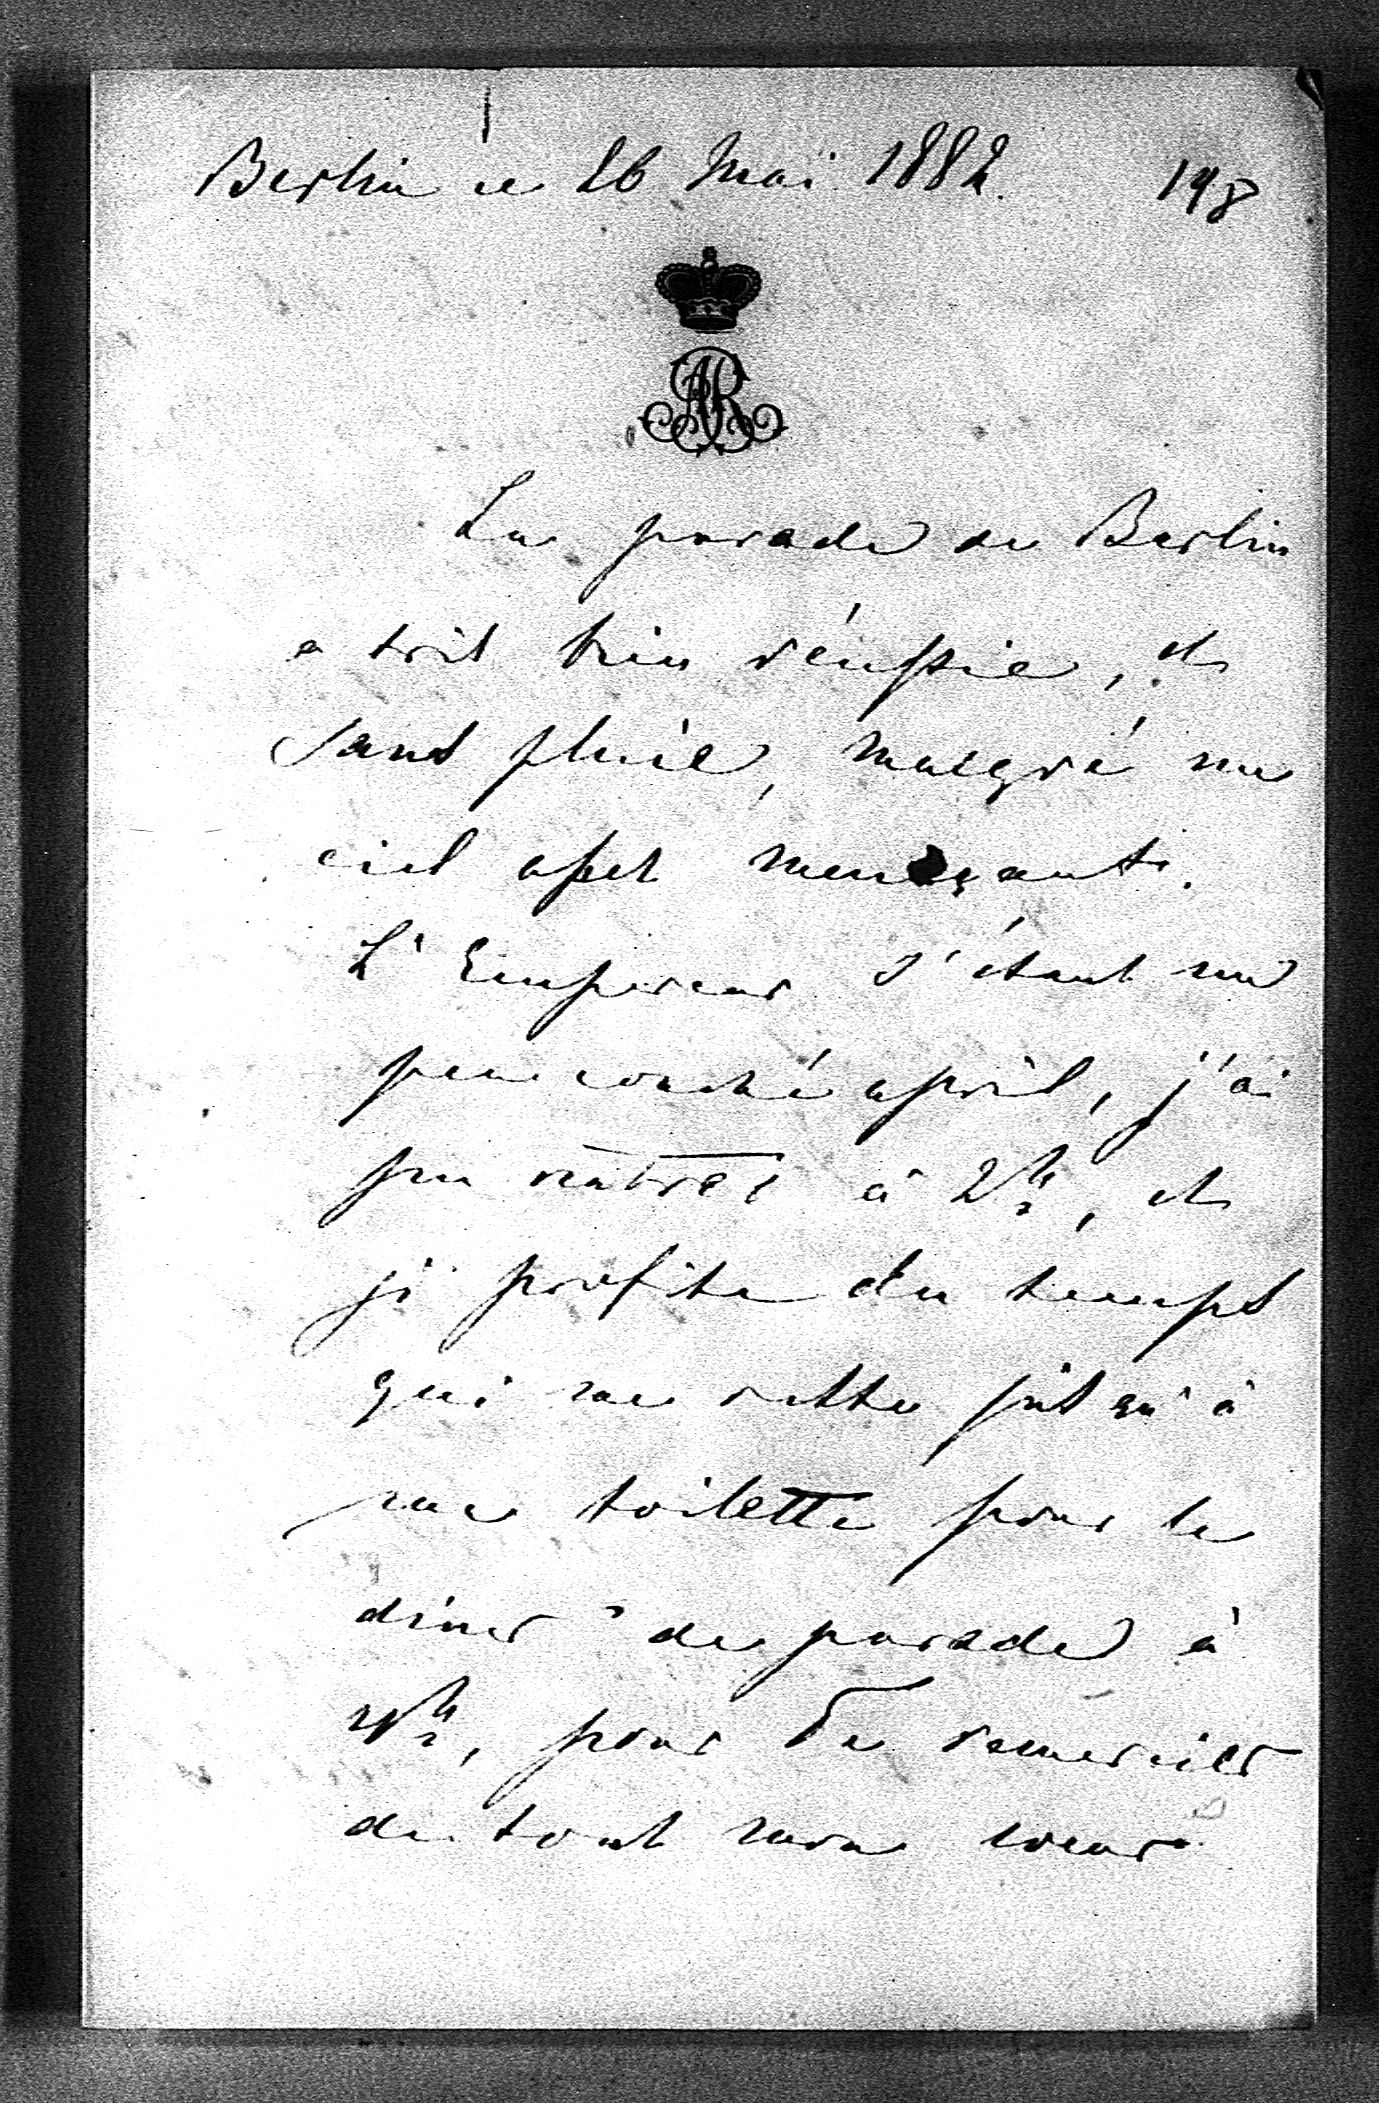 Berlin ce 26 Mai 1882. 198
AR
La parade de Berlin
a très bien réussie, et
sans pluie, malgré un
ciel assez menaçant.
L'Empereur s'étant un
peu couché après, j'ai
pu rentrer à 2h½, et
je profite du temps
qui me reste jusqu'à
ma toilette pour le
diner de parade à
4h½, pour Te remercier
de tout mon coeur